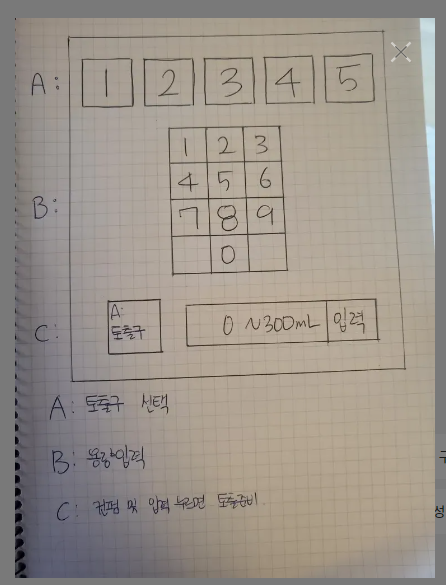 A: 1 2 3 4 5
1 2 3
4 5 6
B:
7 8 9
0
C: A: 토출구 0 ~300mL 입력
A: 토출구 선택
B: 용량입력
C: 컨펌 및 입력 누르면 토출준비
구
성